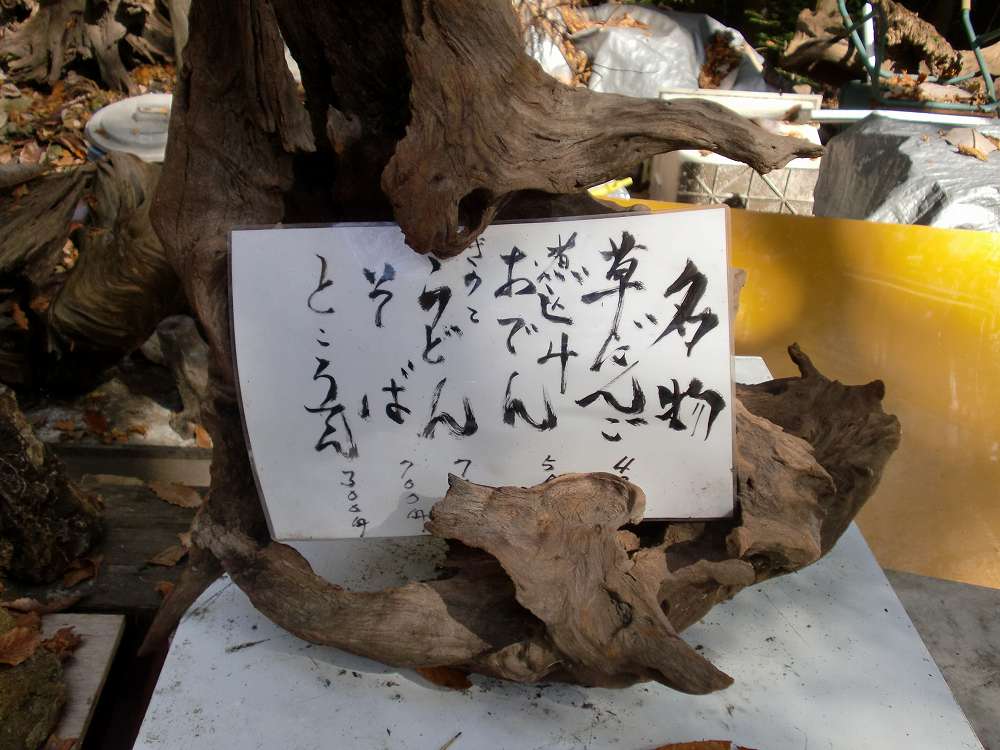 名物
草だんご 4
煮込み
おでん 5
きのこ
うどん 7
そば 700円
ところ天 300円